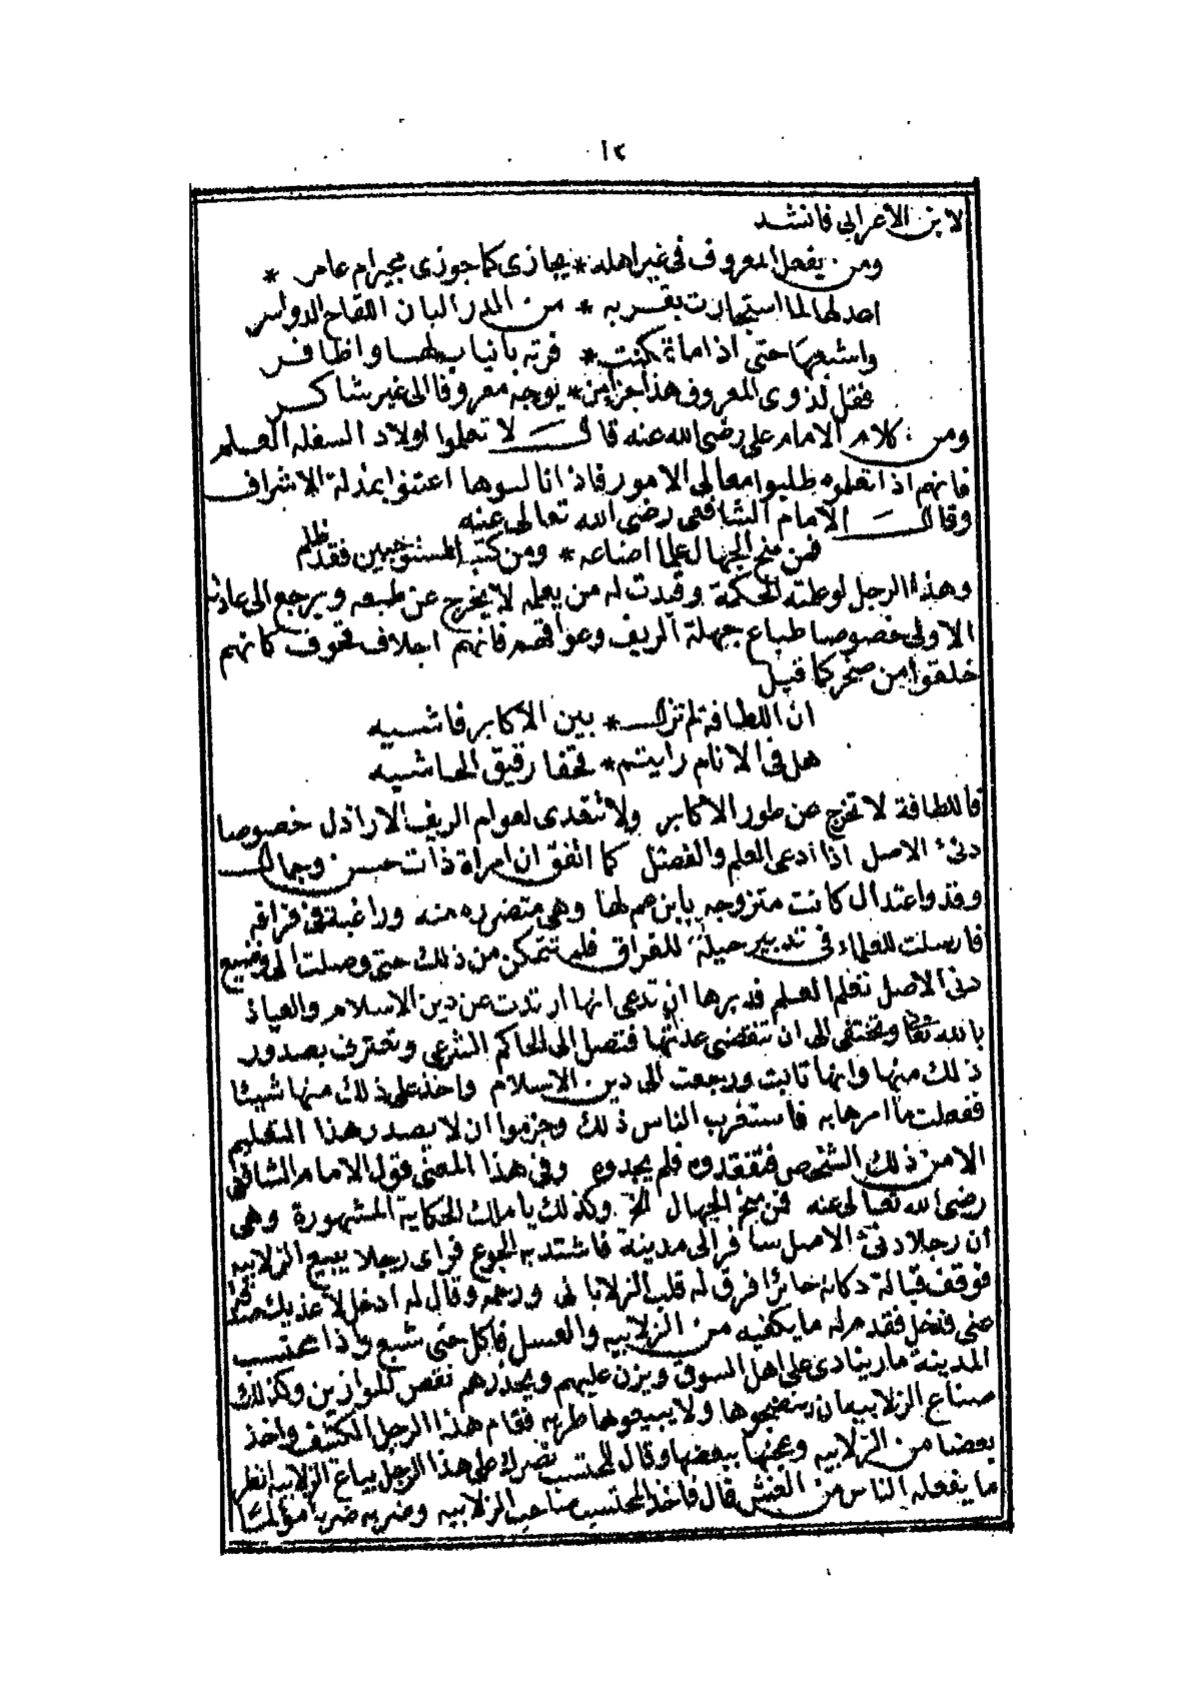 ١٢
لابن الأعرابي فانشد
ومن يفعل المعروف في غير اهله * يجازى كما جوزى مجير ام عامر *
اعد لها لما استجارت بقربه * من الدر البان اللقاح الدواسر
واشبعها حتى اذا ما تمكنت * فرته بانياب لها واظافر
فقل لذوى المعروف هذا جزا من * يوجه معروفا الى غير شاكر
ومن كلام الامام على رضى الله عنه قال لا تعلموا اولاد السفله العلم
فانهم اذا تعلموه طلبوا معالى الامور فاذا نالسوها اعتنوا بمذلة الاشراف
وقال الامام الشافعى رضى الله تعالى عنه
فمن منح الجهال علما اضاعه * ومن كتم المستوجبين فقد ظلم
وهذا الرجل لوعظته الحكمة وقيدت له من يعمله لا يخرج عن طبعه ويرجع الى عادته
الاولى خصوصا طباع جهلة الريف وعوافهم فانهم اجلاف قحوف كانهم
خلقوا من صخر كما قيل
ان اللطافة لم تزل * بين الاكابر فاشسيه
هل فى الانام رايتم * قحفا رقيق الحاشيه
فاللطافة لا تخرج عن طور الاكابر ولا تتعدى لعوام الريف الاراذل خصوصا
دنئ الاصل اذا ادعى العلم والفضل كما اتفق ان امراة ذات حسن وجمال
وقد واعتدال كانت متزوجه بابن عم لها وهى متضرره منه وراغبة فى فراقه
فارسلت للعلماء فى تدبير حيلة للفراق فلم تتمكن من ذلك حتى وصلت الى وضيع
دنى الاصل تعلم العلم فدبرها ان تدعى انها ارتدت عن دين الاسلام والعياذ
بالله تعالى وتختفى الى ان تنقضى عدتها فتصل الى الحاكم الشرعى وتعترف بصدور
ذلك منها وانها تابت ورجعت الى دين الاسلام واخذ على ذلك منها شيئا
ففعلت ما امرها به فاستغرب الناس ذلك وجزموا ان لا يصدر هذا التعليم
الا من ذلك الشخص فتفقدوه فلم يجدوه وفى هذا المعنى قول الامام الشافعى
رضى الله تعالى عنه فمن منح الجهال الخ وكذلك يا مالك الحكاية المشهورة وهى
ان رجلا دنئ الاصل سافر الى مدينة فاشتد به الجوع فراى رجلا يبيع الزلابيه
فوقف قبالة دكانه حائرا فرق له قلب الزلابانى ورحمه وقال له ادخل لاغذيك
عنى فدخل فقدم له ما يكفيه من الزلابيه والعسل فاكل حتى شبع واذا بمحتسب
المدينة مار ينادى على اهل السوق ويزن عليهم ويحذرهم نقص الموازين وكذلك
صناع الزلابيه ان ينضجوها ولا يبيعوها طريه فقام هذا الرجل الكثيف واخذ
بعضا من الزلابيه وعجنها ببعضها وقال للمحتسب نضرك على هذا الرجل بياع الزلابيه انظر
ما يفعله الناس من الغش قال فاخذ المحتسب صاحب الزلابيه وضربه ضربا مؤلما